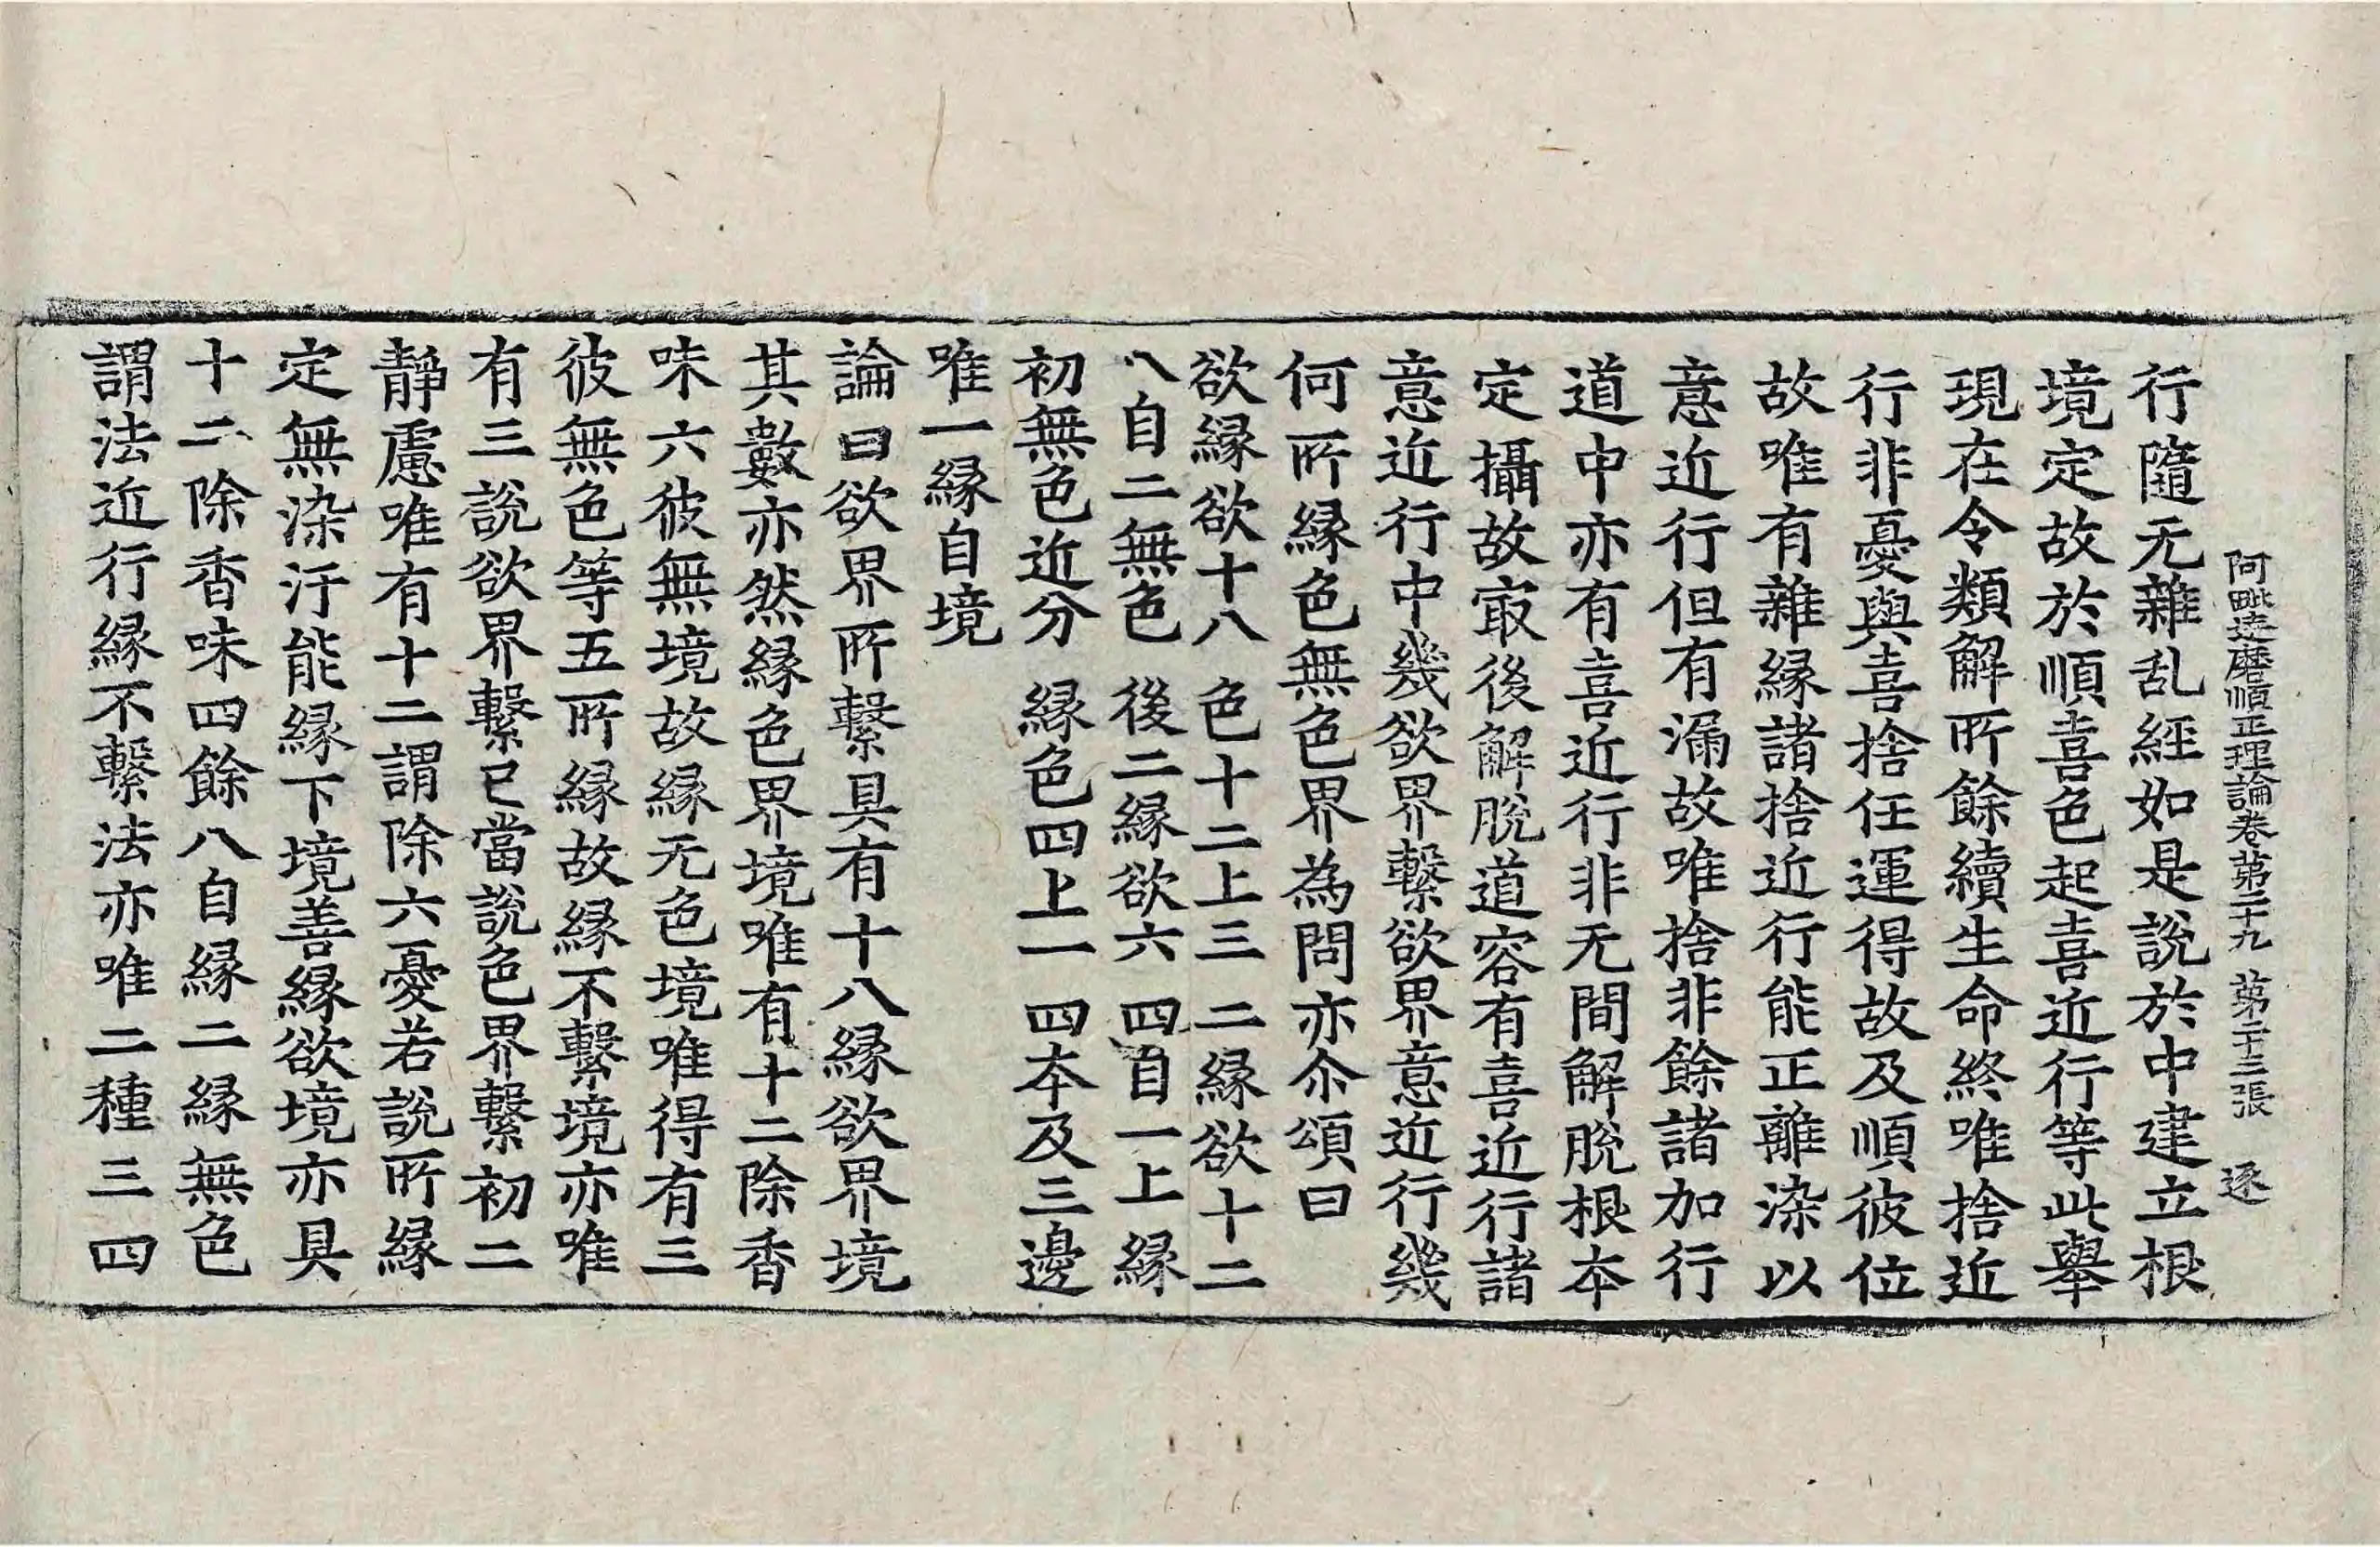 阿毗達磨順正理論卷第二十九 第二十三張 逐
行隨无雜乱經如是說於中建立根
境定故於順喜色起喜近行等此舉
現在令類解所餘續生命終唯捨近
行非憂與喜捨任運得故及順彼位
故唯有雜緣諸捨近行能正離染以
意近行但有漏故唯捨非餘諸加行
道中亦有喜近行非无間解脫根本
定攝故㝡後解脫道容有喜近行諸
意近行中幾欲界繫欲界意近行幾
何所緣色無色界為問亦尒頌曰
欲緣欲十八 色十二上三 二緣欲十二
八自二無色 後二緣欲六 四自一上緣
初無色近分 緣色四上一 四本及三邊
唯一緣自境
論曰欲界所繫具有十八緣欲界境
其數亦然緣色界境唯有十二除香
味六彼無境故緣无色境唯得有三
彼無色等五所緣故緣不繫境亦唯
有三說欲界繫已當說色界繫初二
靜慮唯有十二謂除六憂若說所緣
定無染汙能緣下境善緣欲境亦具
十二除香味四餘八自緣二緣無色
謂法近行緣不繫法亦唯二種三四